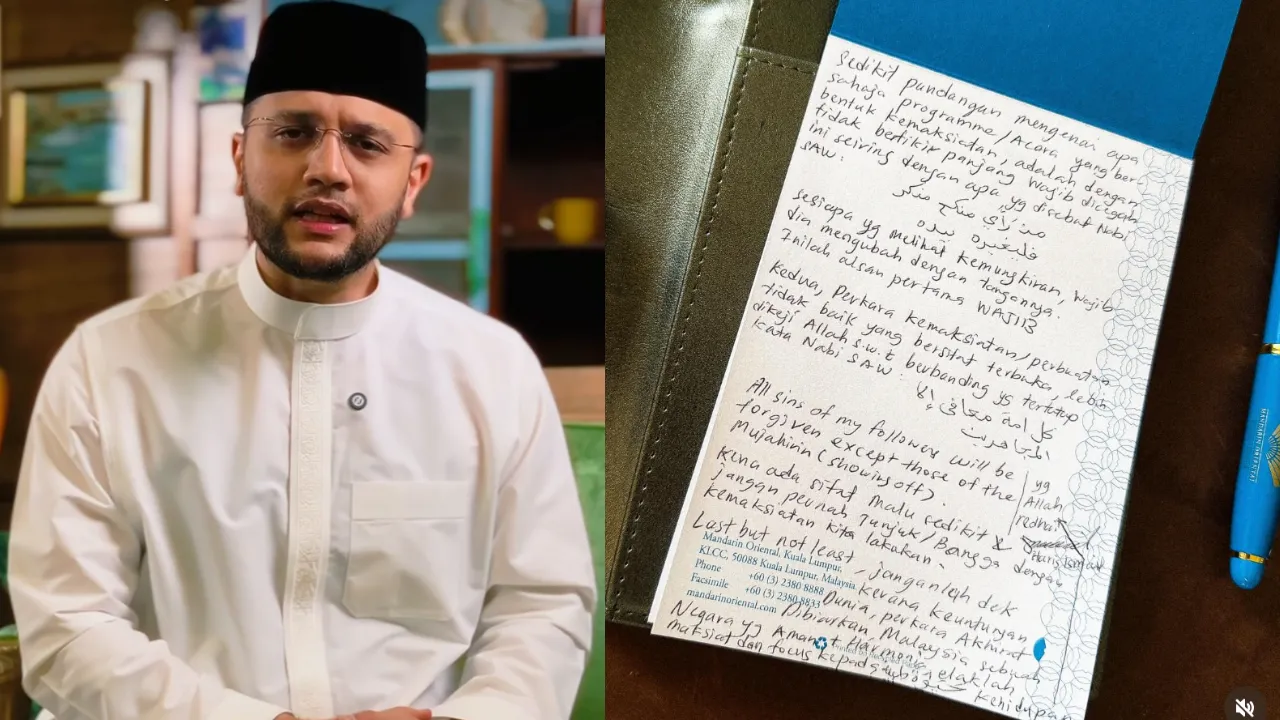 Sedikit pandangan mengenai apa
sahaja programme/Acara yang ber
bentuk kemaksiatan, adalah dengan
tidak berfikir panjang Wajib dicegah
ini seiring dengan apa yg disebut Nabi
SAW:
من رأى منكم منكر
فليغيره بيده
sesiapa yg melihat kemungkiran, wajib
dia mengubah dengan tangannya.
Inilah alsan pertama WAJIB
Kedua, perkara kemaksiatan/perbuatan
tidak baik yang bersifat terbuka, lebih
dikeji Allah s.w.t berbanding yg tertutup
kata Nabi SAW:
كل امة معافى إلا
المجاهرين
All sins of my followers will be
forgiven except those of the
Mujahirin (showing off)
Kena ada sifat malu sedikit &
jangan pernah Tunjuk/Bangga dengan
kemaksiatan kita lakukan.
yg
Allah
redhai
Haris Ismail
Last but not least, janganlah dek
kerana keuntungan
Dunia, perkara Akhirat
Dibiarkan Malaysia sebuah
Negara yg Aman & Harmoni, elaklah
maksiat dan focus kepada kehidupan
Mandarin Oriental, Kuala Lumpur,
KLCC, 50088 Kuala Lumpur, Malaysia
Phone +60 (3) 2380 8888
Facsimile +60 (3) 2380 8833
mandarinoriental.com
MANDARIN ORIENTAL